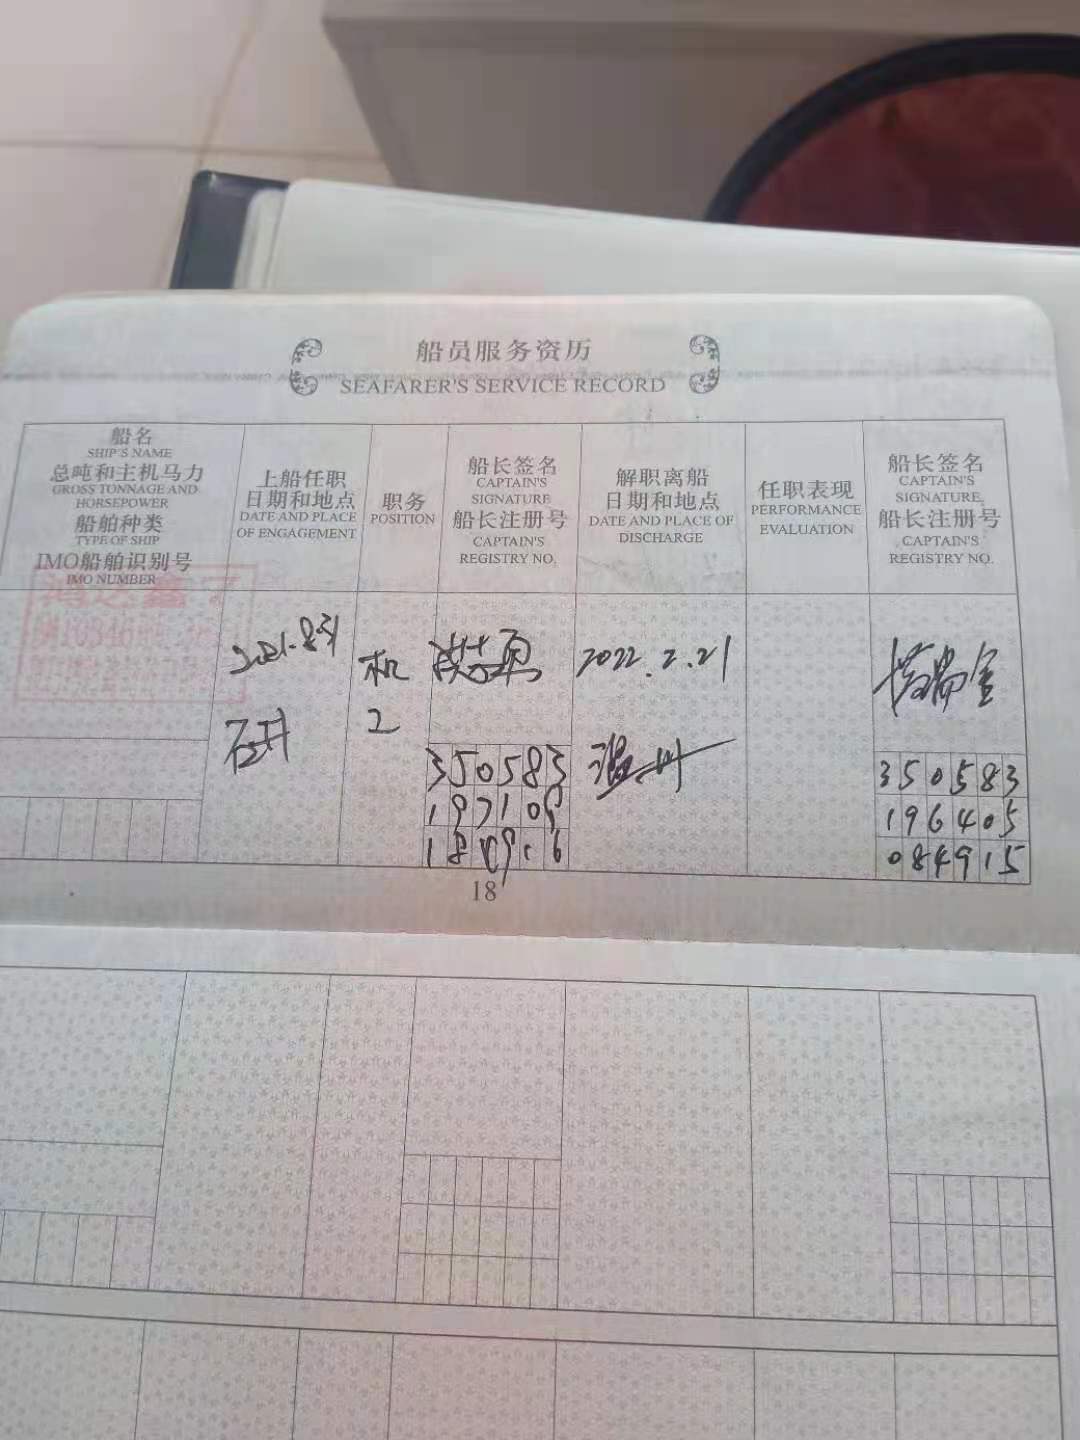 船员服务资历
SEAFARER'S SERVICE RECORD
船名
SHIP'S NAME
总吨和主机马力
GROSS TONNAGE AND
HORSEPOWER
船舶种类
TYPE OF SHIP
IMO船舶识别号
IMO NUMBER
上船任职
日期和地点
DATE AND PLACE
OF ENGAGEMENT
职务
POSITION
船长签名
CAPTAIN'S
SIGNATURE
船长注册号
CAPTAIN'S
REGISTRY NO.
解职离船
日期和地点
DATE AND PLACE OF
DISCHARGE
任职表现
PERFORMANCE
EVALUATION
船长签名
CAPTAIN'S
SIGNATURE,
船长注册号
CAPTAIN'S
REGISTRY NO.
2021.8.31
机
工
350583
2022.2.21
温州
350583
196405
084915
18